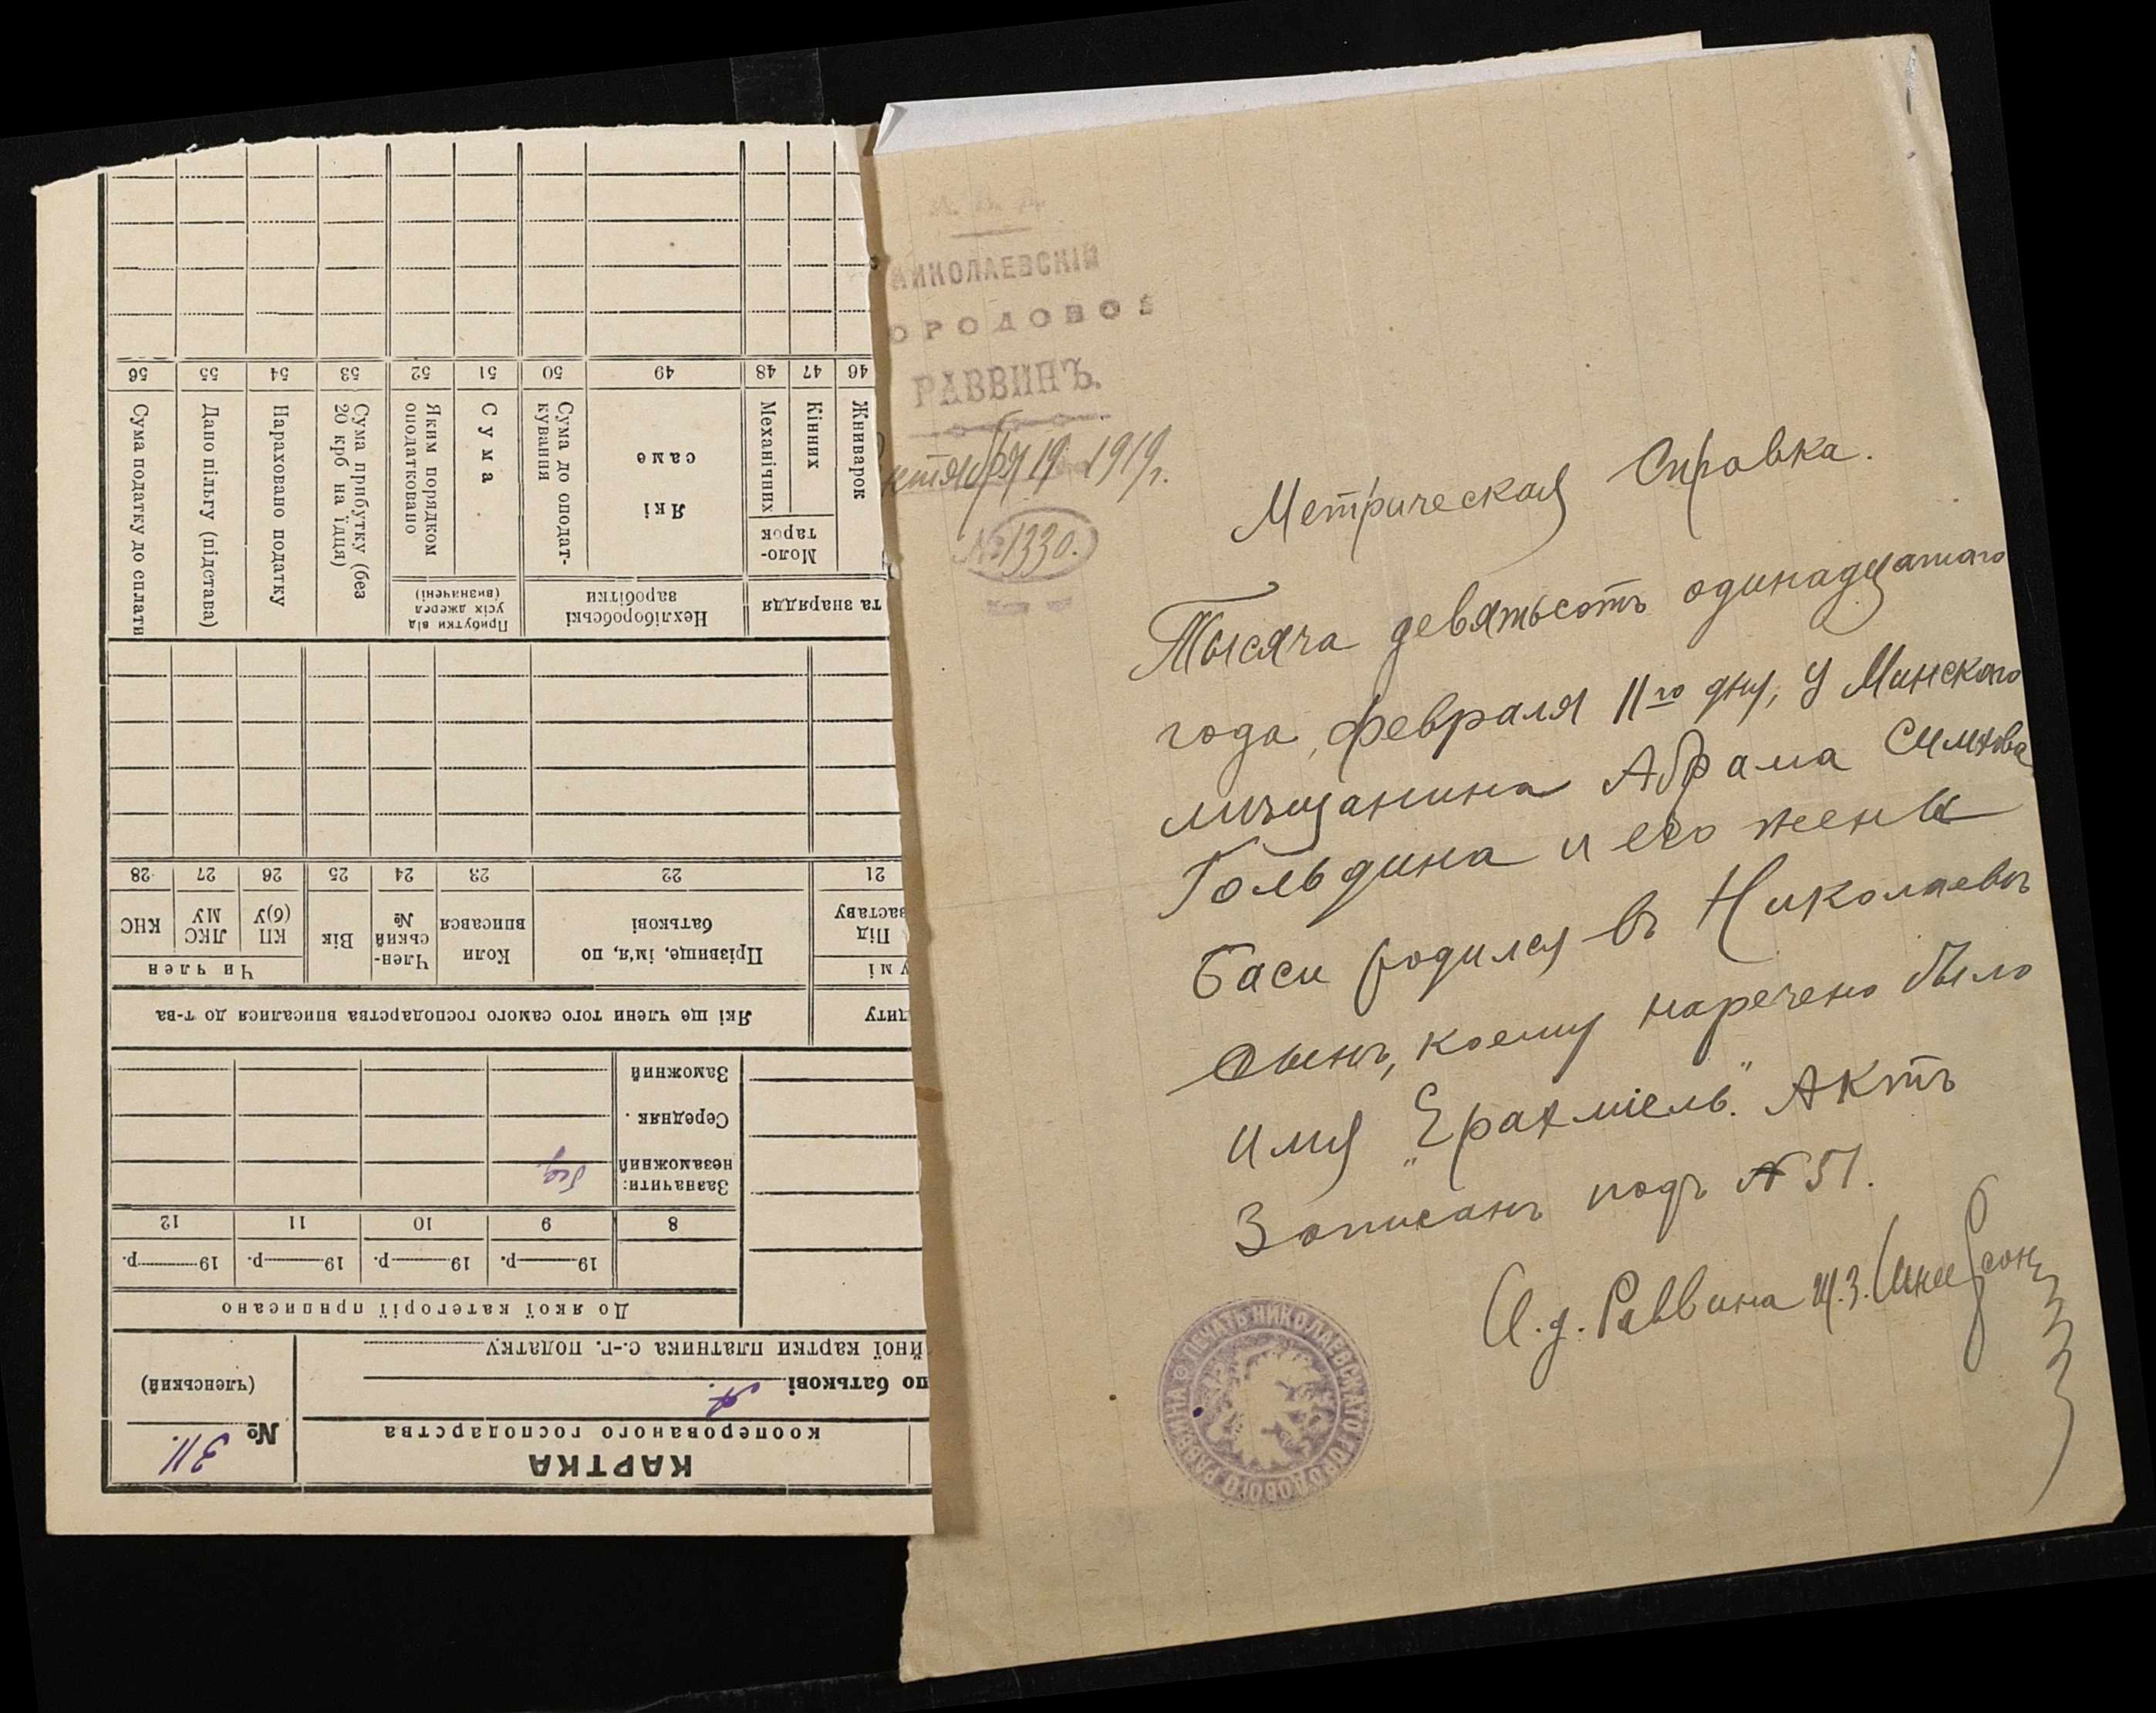 НИКОЛАЕВСКІЙ
ГОРОДОВОЙ
РАВВИНЪ.
Октября 19 1919 г.
№ 1330.
Метрическая Справка.
Тысяча девятьсотъ одинадцатаго
года, февраля 11го дня, у Минскаго
мѣщанина Абрама Симхова
Гольдина и его жены
Баси родился въ Николаевѣ
сынъ, коему наречено было
имя „Ерахміель." Актъ
Записанъ подъ № 51.
И. д. Раввина
ПЕЧАТЬ НИКОЛАЕВСКАГО ГОРОДОВОГО РАВВИНА
КАРТКА
кооперованого господарства
№ 311.
(членський)
по батькові А.
йної картки платника с.-г. податку
До якої категорії приписано
19 р. 19 р. 19 р. 19 р.
8 9 10 11 12
Зазначити:
незаможний бід.
Середняк .
Заможний
диту Які ще члени того самого господарства вписалися до т-ва
у мі
Під
заставу
Прізвище, ім'я, по
батькові
Коли
вписався
Член-
ський
№
Вік
Чи член
КП
(б)У
ЛКС
МУ
КНС
21 22 23 24 25 26 27 28
та знаряддя
Нехліборобські
заробітки
Прибутки від
усіх джерел
(визначені)
Жниварок
Моло-
тарок
Кінних
Механічних
Які
саме
Сума до оподат-
кування
Сума
Яким порядком
оподатковано
Сума прибутку (без
20 крб на їдця)
Нараховано податку
Дано пільгу (підстава)
Сума податку до сплати
46 47 48 49 50 51 52 53 54 55 56